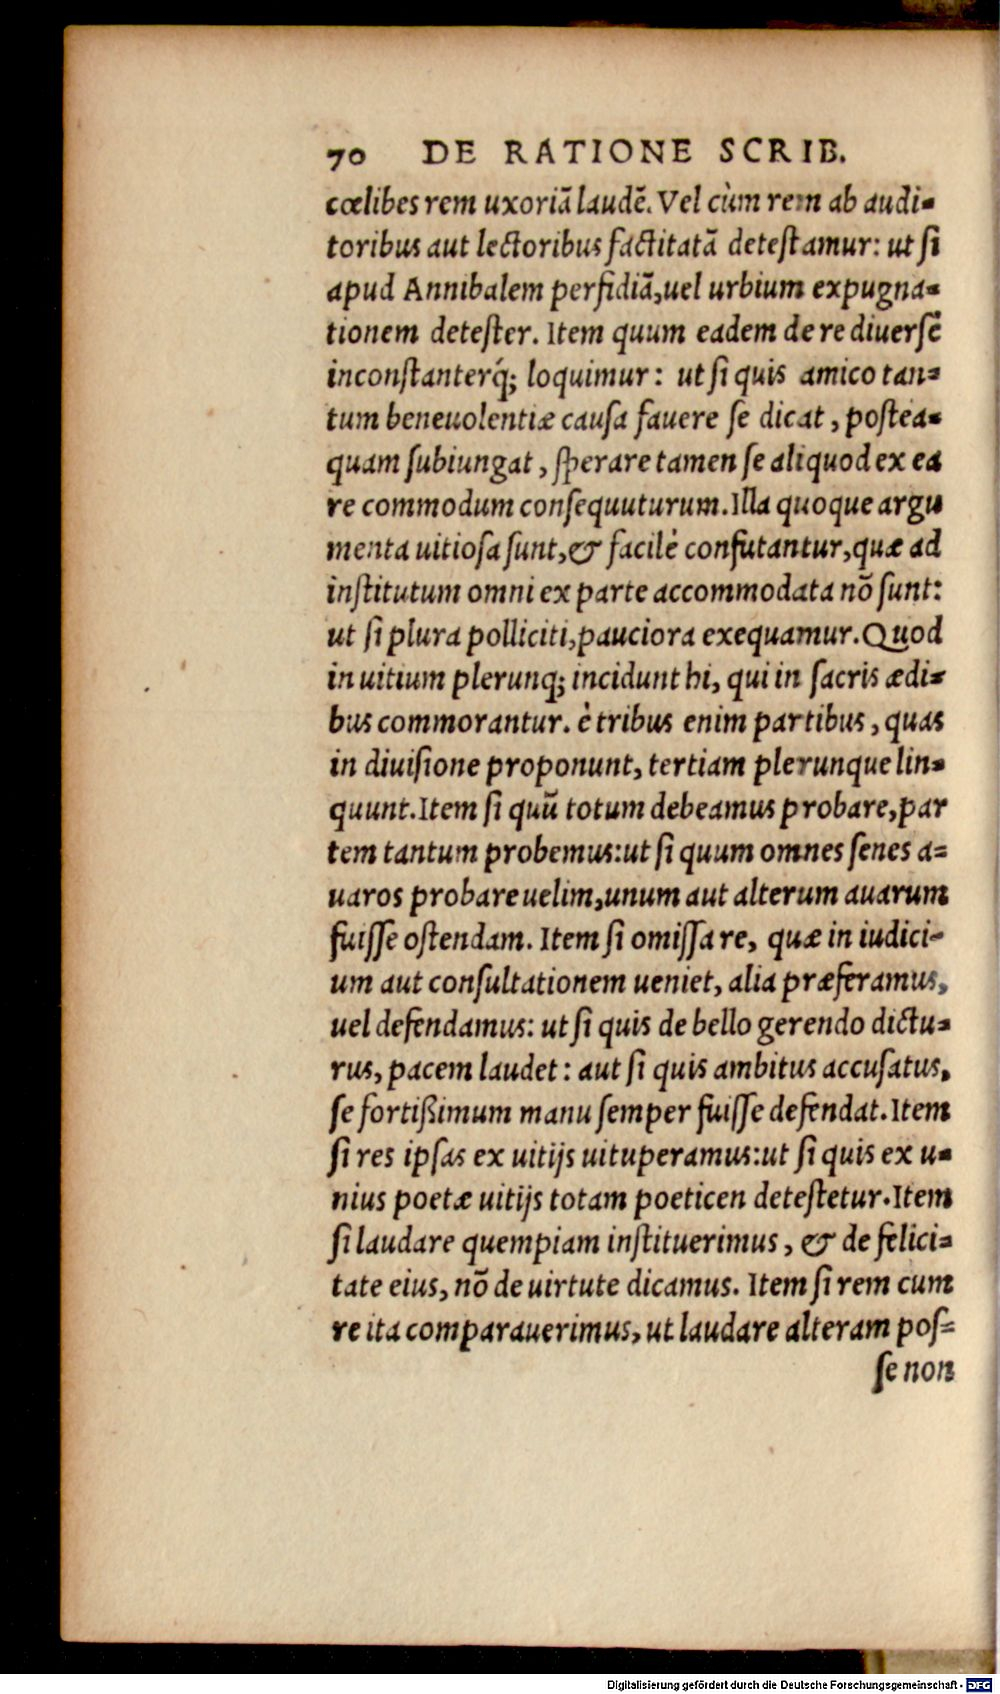 70 DE RATIONE SCRIB.
cœlibes rem uxoriã laudẽ. Vel cùm rem ab audi-
toribus aut lectoribus factitatã detestamur: ut si
apud Annibalem perfidiã, uel urbium expugna-
tionem detester. Item quum eadem de re diuersẽ
inconstanterq́; loquimur: ut si quis amico tan-
tum beneuolentiæ causa fauere se dicat, postea-
quam subiungat, sperare tamen se aliquod ex ea
re commodum consequuturum. Illa quoque argu
menta uitiosa sunt, & facilè confutantur, quæ ad
institutum omni ex parte accommodata nõ sunt:
ut si plura polliciti, pauciora exequamur. Quod
in uitium plerunq; incidunt hi, qui in sacris ædi-
bus commorantur. è tribus enim partibus, quas
in diuisione proponunt, tertiam plerunque lin-
quunt. Item si quũ totum debeamus probare, par
tem tantum probemus: ut si quum omnes senes a-
uaros probare uelim, unum aut alterum auarum
fuisse ostendam. Item si omissa re, quæ in iudici-
um aut consultationem ueniet, alia præferamus,
uel defendamus: ut si quis de bello gerendo dictu-
rus, pacem laudet: aut si quis ambitus accusatus,
se fortißimum manu semper fuisse defendat. Item
si res ipsas ex uitijs uituperamus: ut si quis ex u-
nius poetæ uitijs totam poeticen detestetur. Item
si laudare quempiam instituerimus, & de felici-
tate eius, nõ de uirtute dicamus. Item si rem cum
re ita comparauerimus, ut laudare alteram pos-
se non
Digitalisierung gefördert durch die Deutsche Forschungsgemeinschaft - DFG